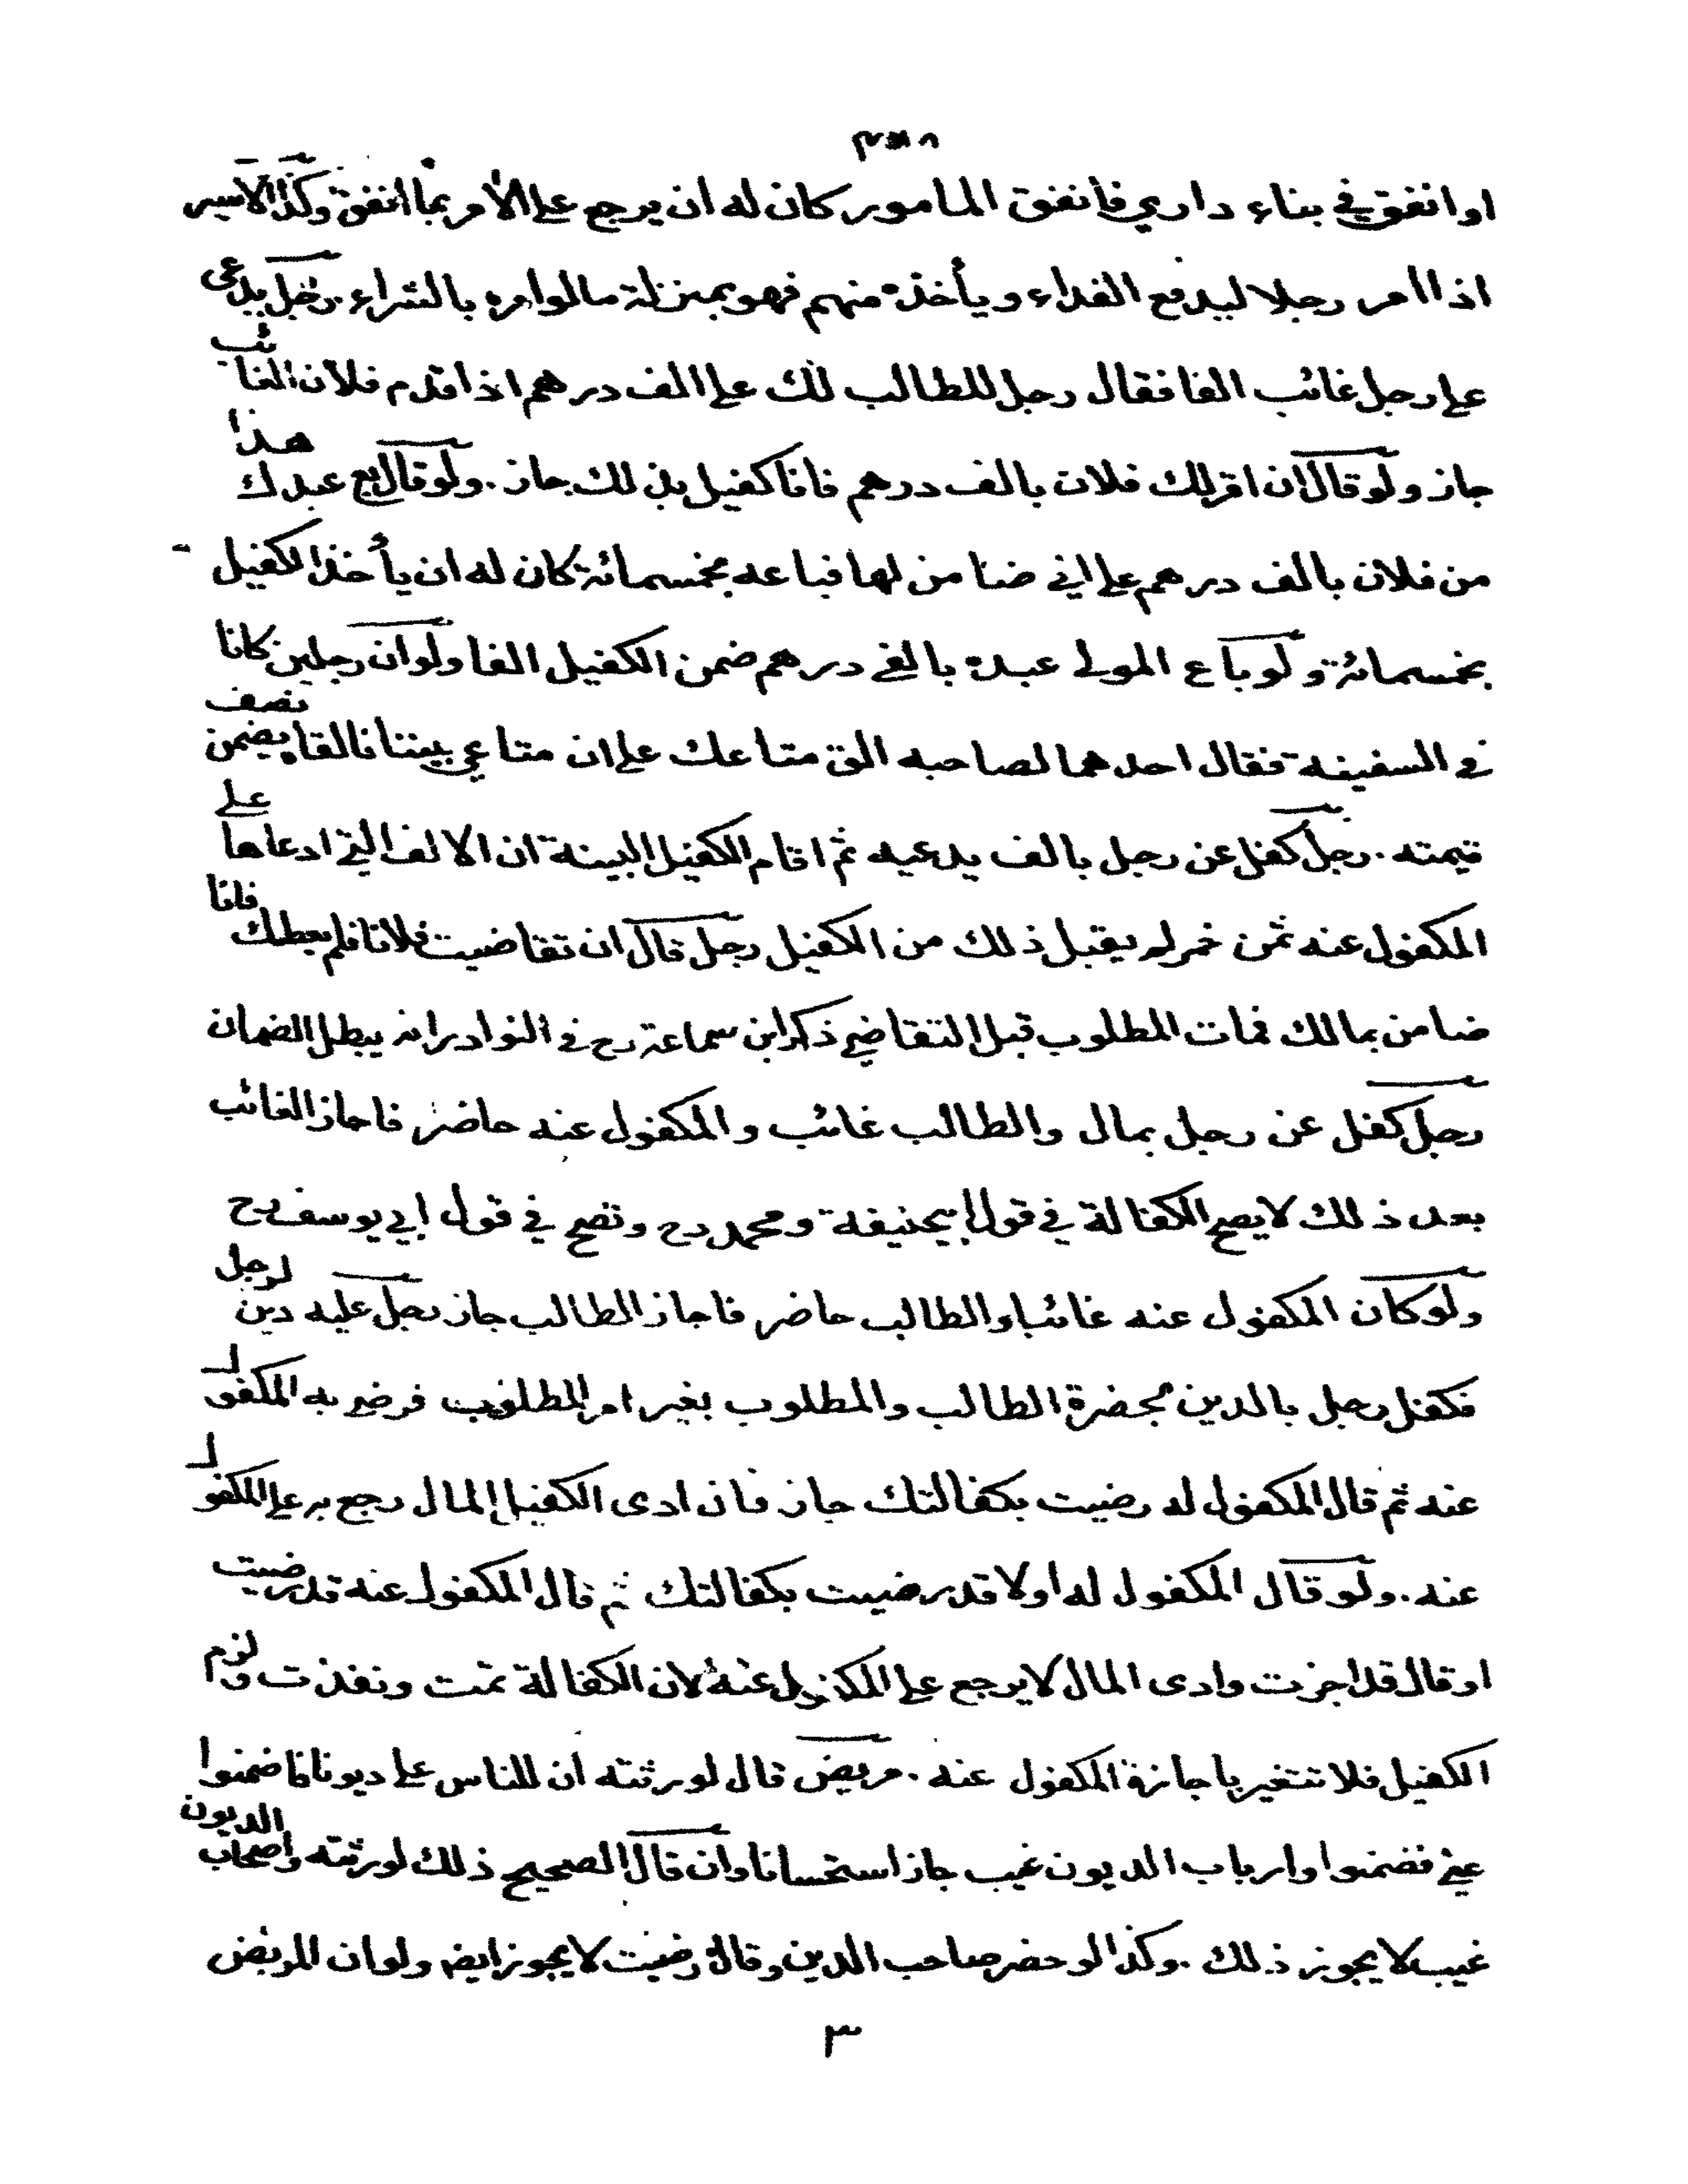 او انفق في بناء داري فأنفق المامور كان له ان يرجع على الأمر بما انفق وكذا الاسير
اذا امر رجلا ليدفع الفداء ويأخذه منهم فهو بمنزلة مالو امره بالشراء رجل يدعى
على رجل غائب الفا فقال رجل للطالب لك على الف درهم اذا قدم فلان الغائب
جاز ولو قال ان اقر لك فلان بالف درهم فانا كفيل بذلك جاز. ولو قال بع عبدك هذا
من فلان بالف درهم على اني ضامن لها فباعه بخمسمائة كان له ان يأخذ الكفيل
بخمسمائة ولو باع المولى عبده بالفي درهم ضمن الكفيل الفا ولو ان رجلين كانا
في السفينة فقال احدهما لصاحبه الق متاعك على ان متاعي بيننا فالقاه يضمن نصف
قيمته. رجل كفل عن رجل بالف يدعيه ثم اقام الكفيل البينة ان الالف التي ادعاها على
المكفول عنه ثمن خمر لم يقبل ذلك من الكفيل رجل قال ان تقاضيت فلانا فلم يعطك فانا
ضامن بمالك فمات المطلوب قبل التقاضي ذكر ابن سماعة رح في النوادر انه يبطل الضمان
رجل كفل عن رجل بمال والطالب غائب والمكفول عنه حاضر فاجاز الغائب
بعد ذلك لا يصح الكفالة في قول ابيحنيفة ومحمد رح وتصح في قول ابي يوسف رح
ولو كان المكفول عنه غائبا والطالب حاضر فاجاز الطالب جاز رجل عليه دين لرجل
فكفل رجل بالدين بحضرة الطالب والمطلوب بغير امر المطلوب فرضي به المكفول
عنه ثم قال المكفول له رضيت بكفالتك جاز فان ادى الكفيل المال رجع به على المكفول
عنه. ولو قال المكفول له اولا قد رضيت بكفالتك ثم قال المكفول عنه قد رضيت
او قال قد اجزت وادى المال لا يرجع على المكفول عنه لان الكفالة تمت ونفذت ولزم
الكفيل فلا تتغير باجازة المكفول عنه. مريض قال لورثته ان للناس علي ديونا فاضمنوا
عني فضمنوا وارباب الديون غيب جاز استحسانا وان قال الصحيح ذلك لورثته واصحاب الديون
غيب لا يجوز ذلك. وكذا لو حضر صاحب الدين وقال رضيت لا يجوز ايضا ولو ان المريض
٣